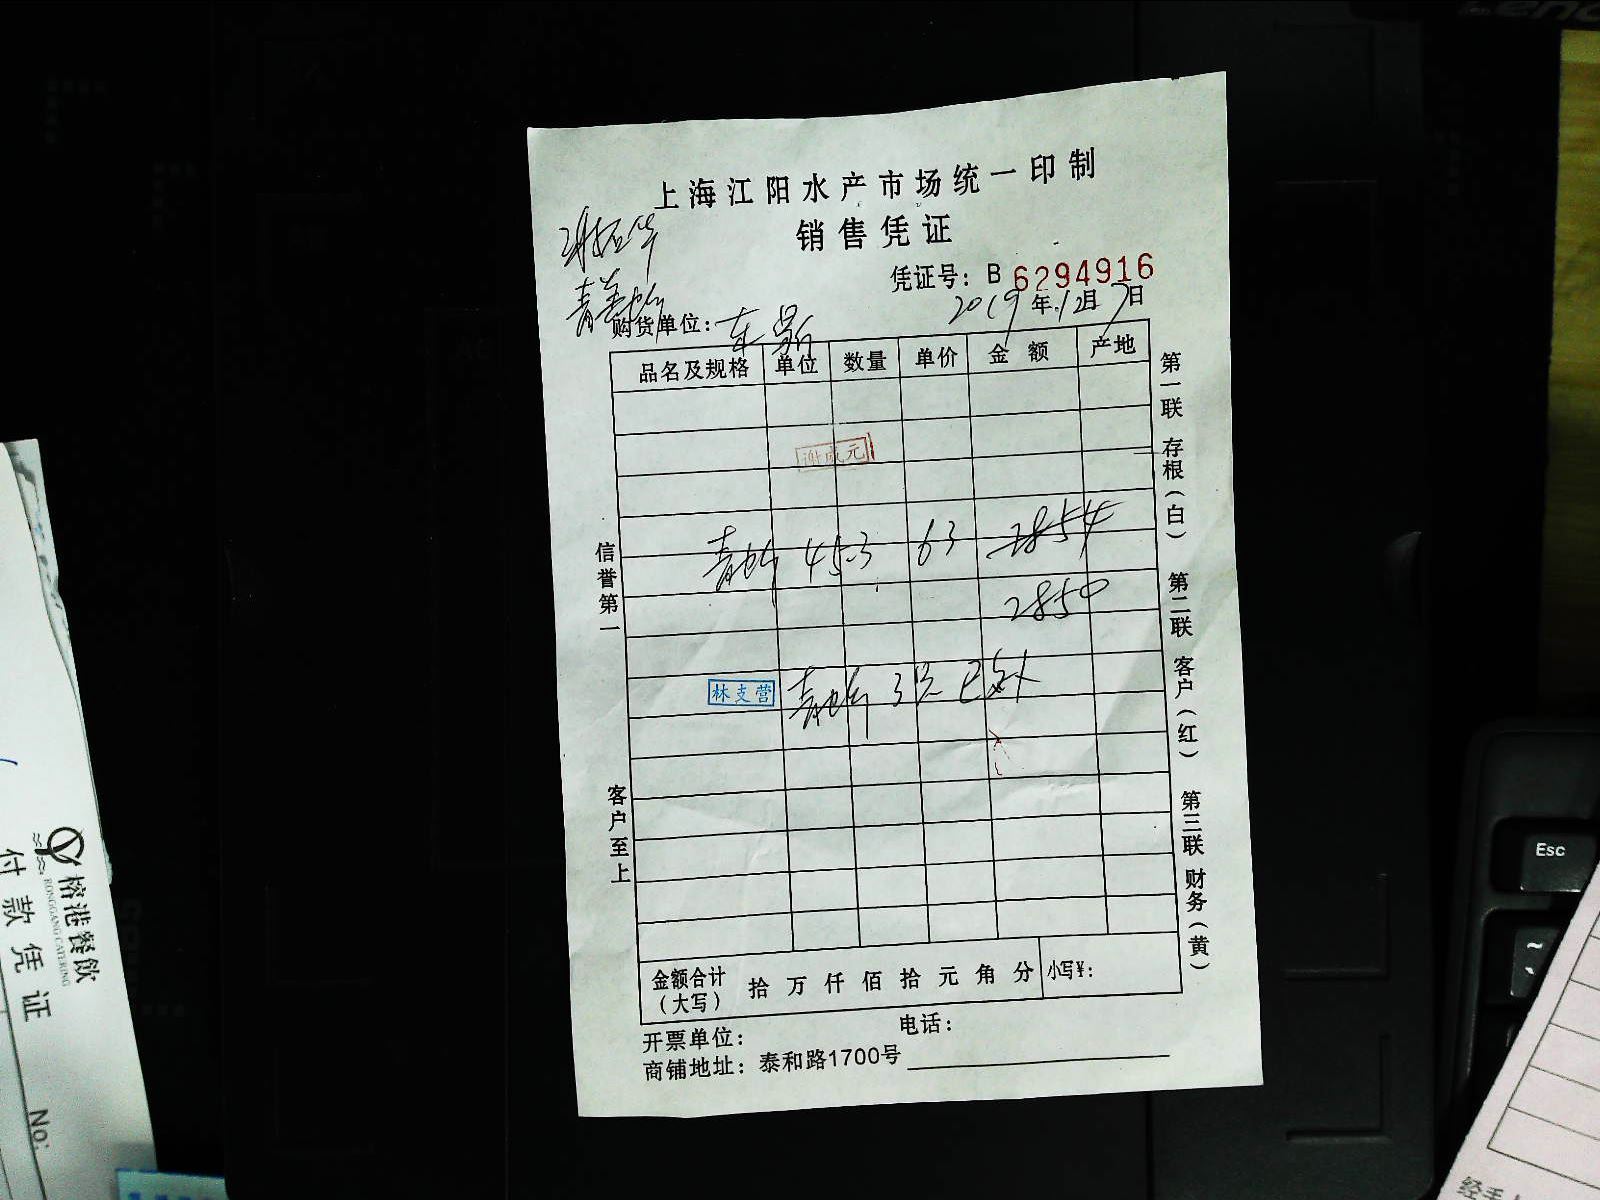 上海江阳水产市场统一印制
销售凭证
凭证号：B 6294916
2019年12月7日
购货单位：
品名及规格 单位 数量 单价 金额 产地
谢成元
45.3 63 2854
2850
林支营
信誉第一
客户至上
第一联 存根（白） 第二联 客户（红） 第三联 财务（黄）
金额合计（大写） 拾 万 仟 佰 拾 元 角 分 小写¥：
开票单位： 电话：
商铺地址：泰和路1700号
榕港餐飲
RONGGANG CATERING
付款凭证
No:
Esc
~
经手